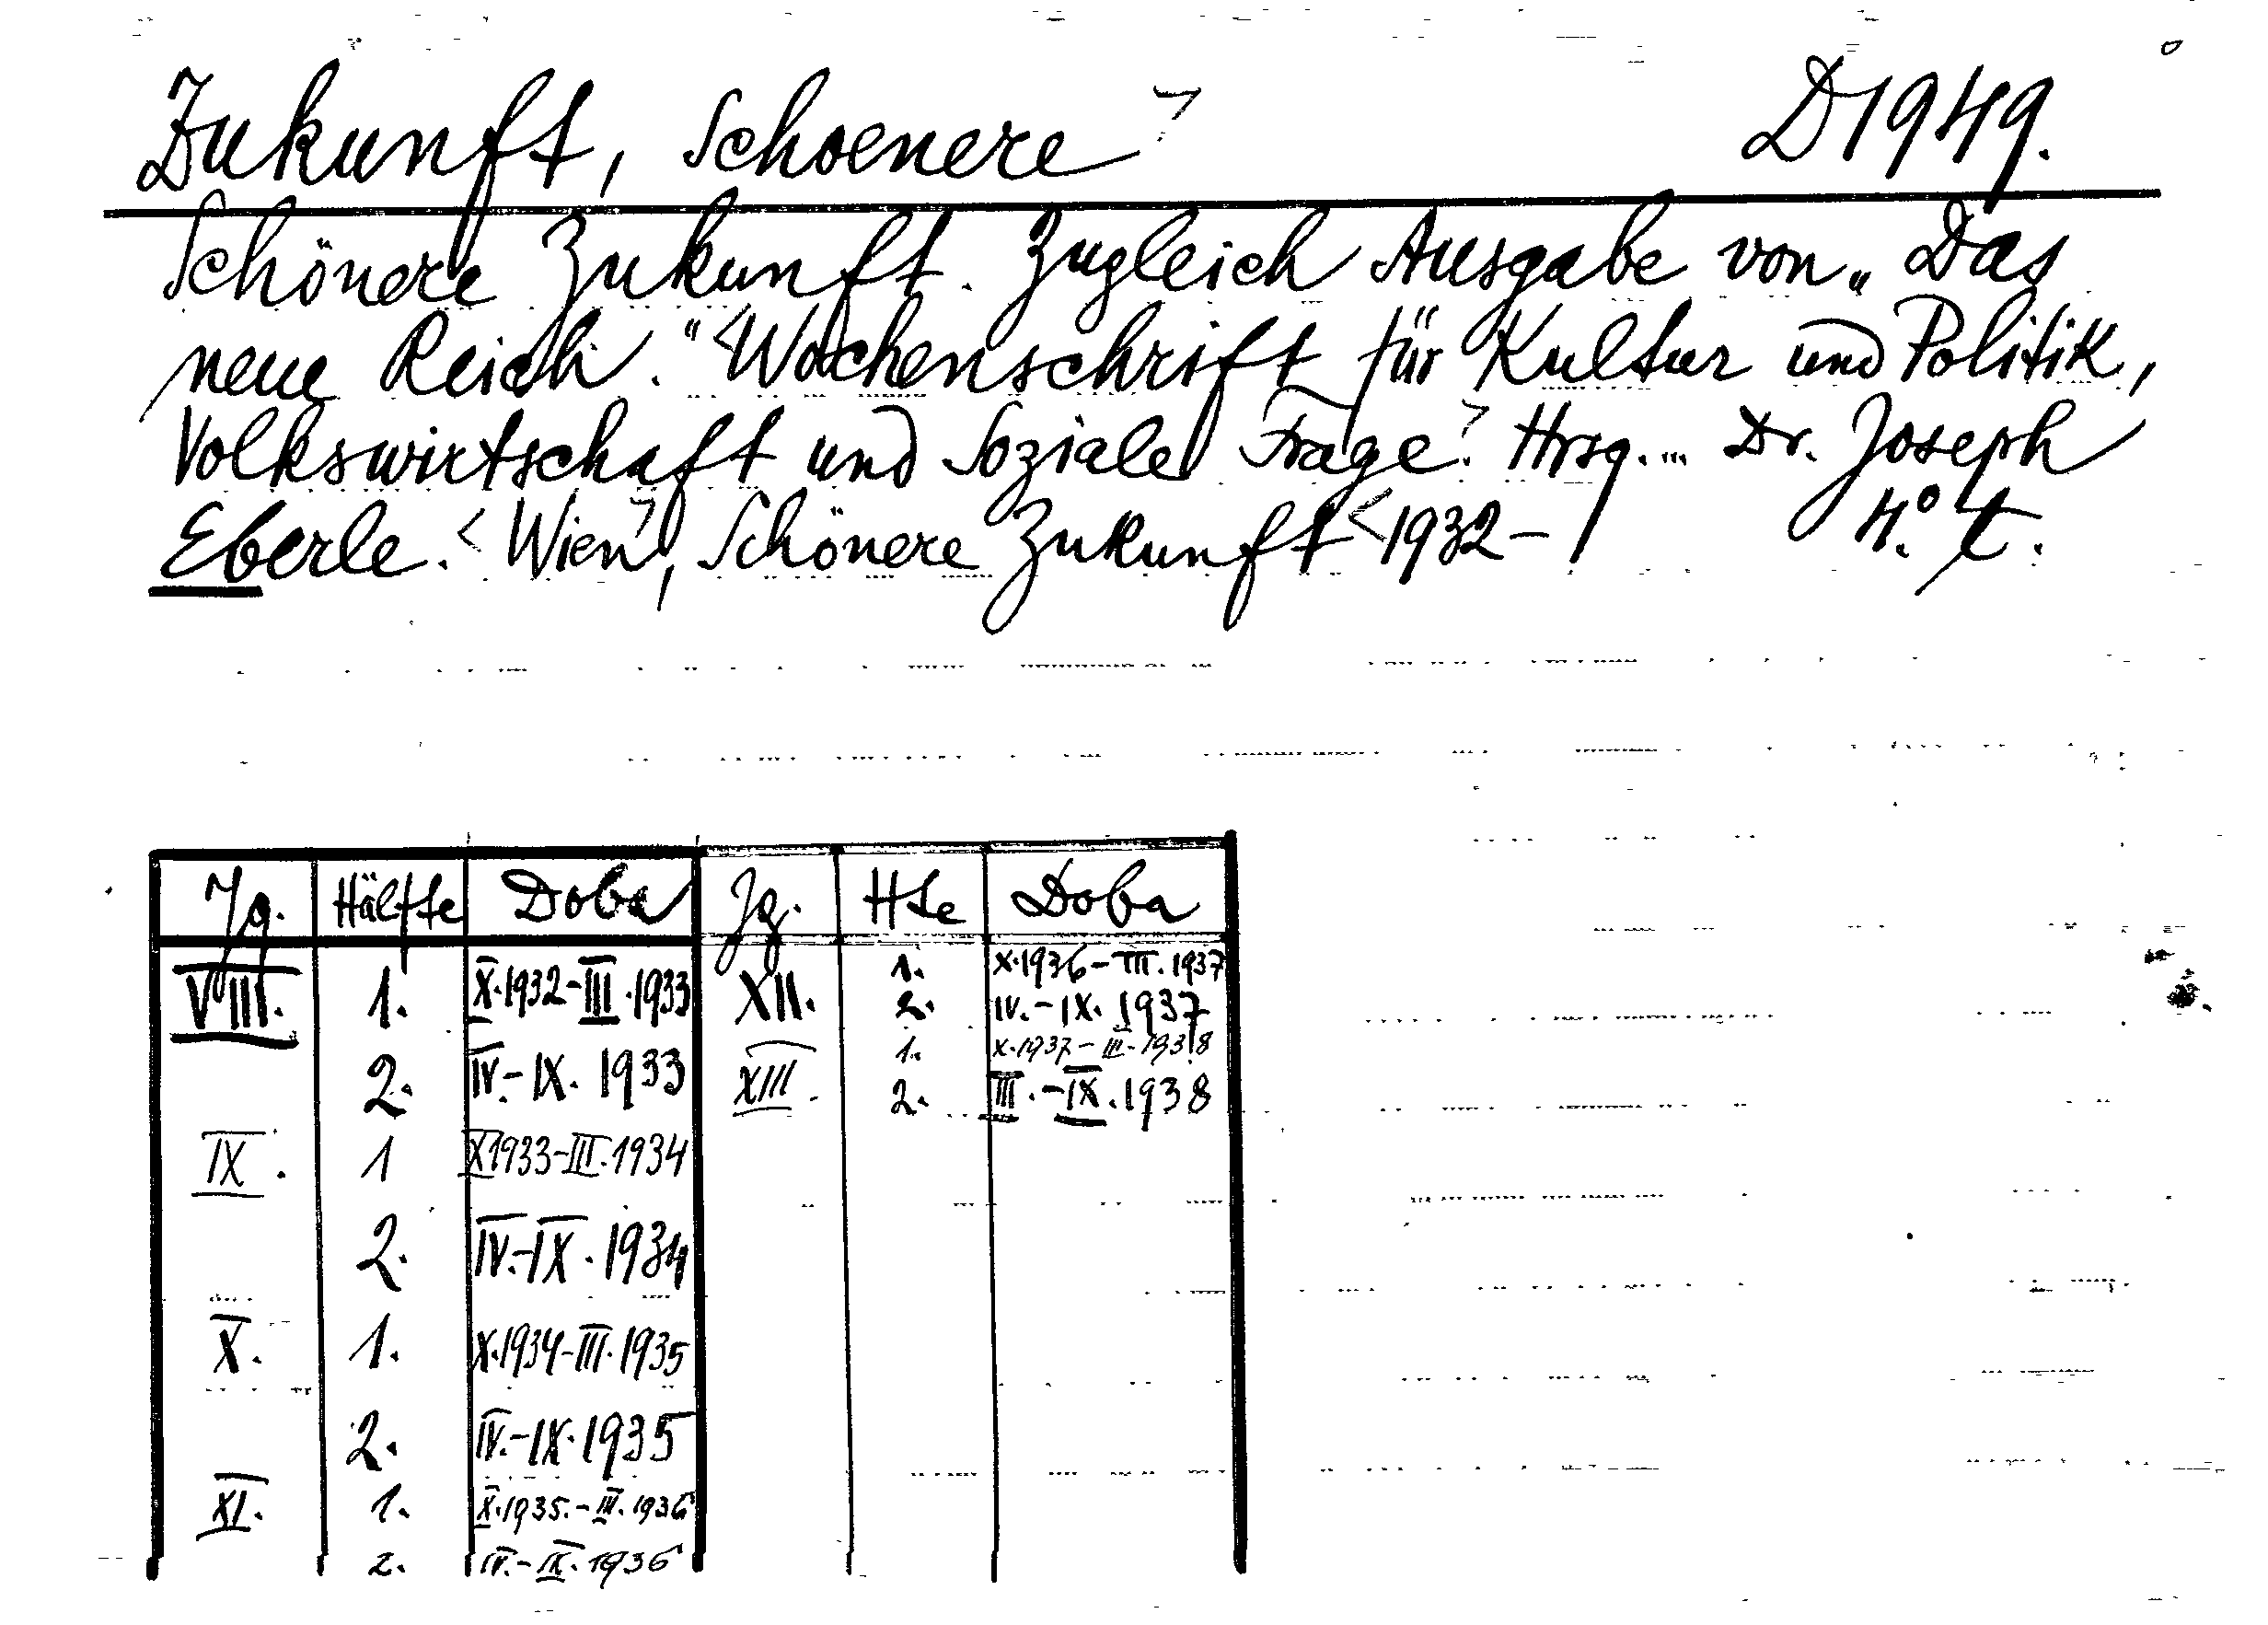 Zukunft, Schoenere> D1949.
Schönere Zukunft. Zugleich Ausgabe von „Das
neue Reich." <Wochenschrift für Kultur und Politik,
Volkswirtschaft und Soziale Frage.> Hrsg. ... Dr. Joseph
Eberle. <Wien>, Schönere Zukunft <1932- 4.°
Jg. Hälfte Doba Jg. Hte Doba
VIII. 1. X.1932-III.1933 XII. 1. X.1936-III.1937
2. IV.-IX. 1937
2. IV.-IX. 1933 XIII. 1. X.1937-III-1938
2. III.-IX.1938
IX. 1 X1933-III.1934
2. IV.-IX. 1934
X. 1. X.1934-III.1935
2. IV.-IX.1935
XI. 1. X.1935.-III.1936
2. IV.-IX.1936